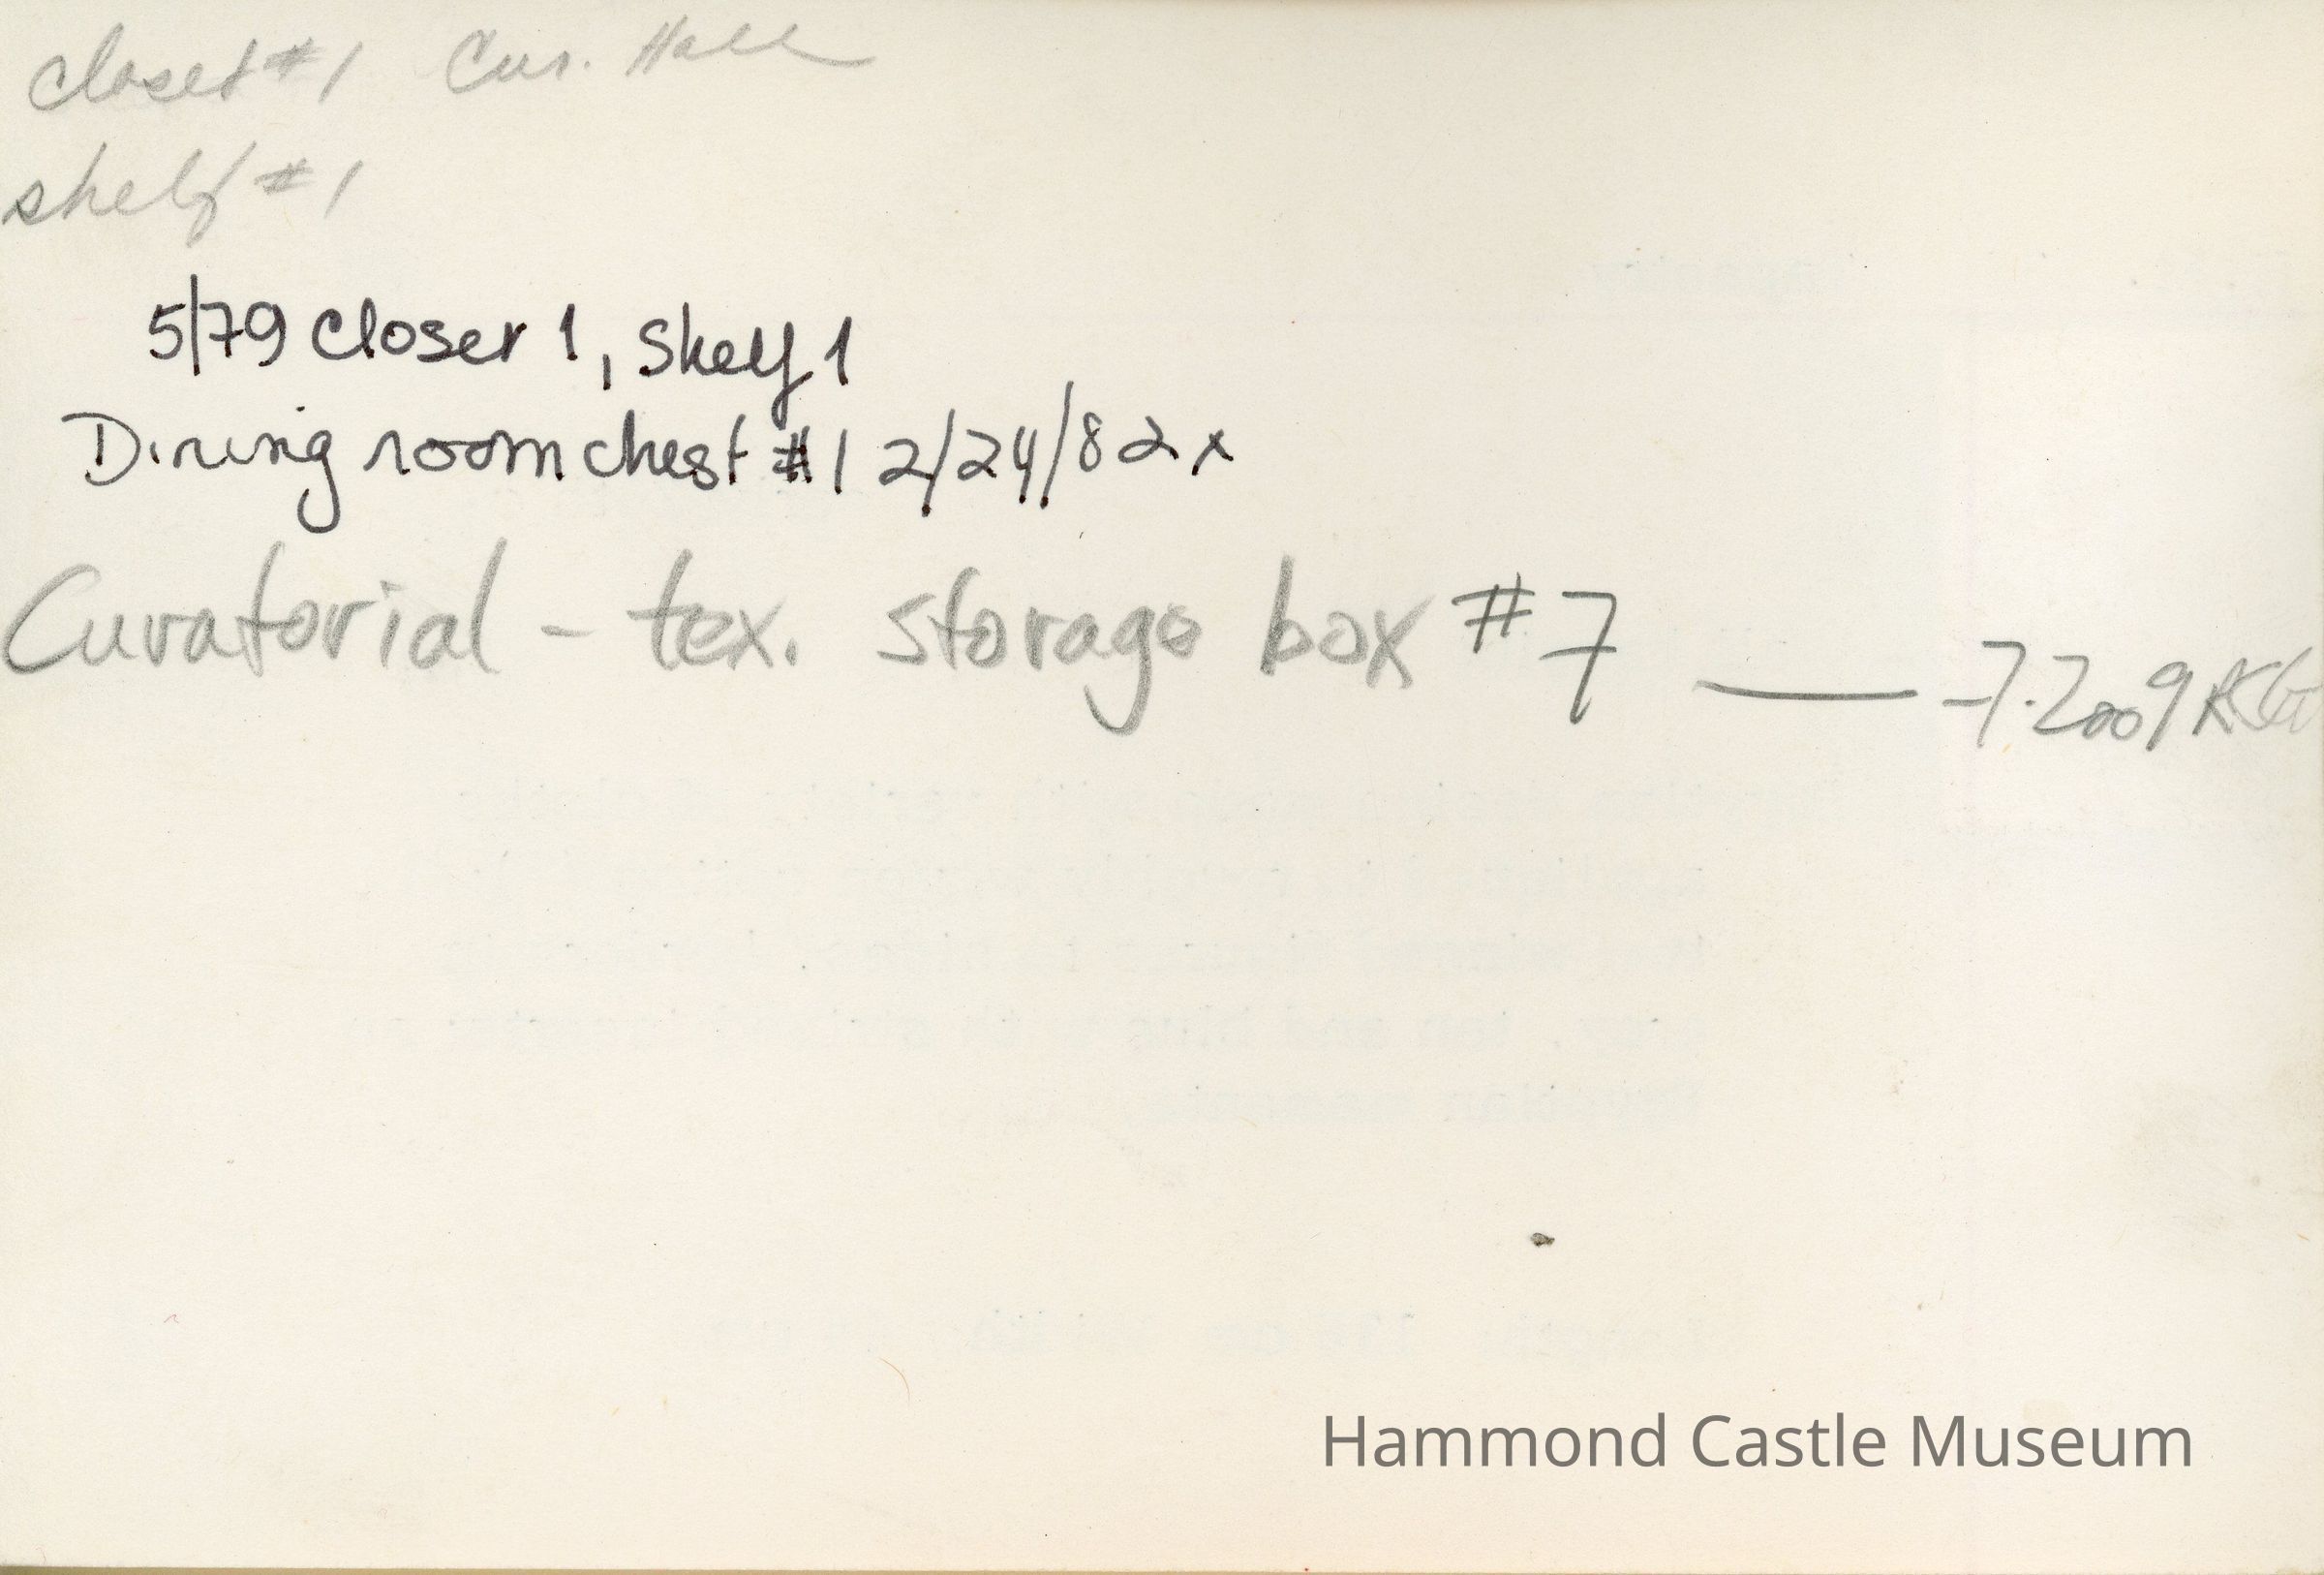 closet #1 Cur. Hall
shelf #1
5/79 Closet 1, Shelf 1
Dining room chest #1 2/24/82 x
Curatorial - tex. storage box #7 — -7.2009 KSG
Hammond Castle Museum